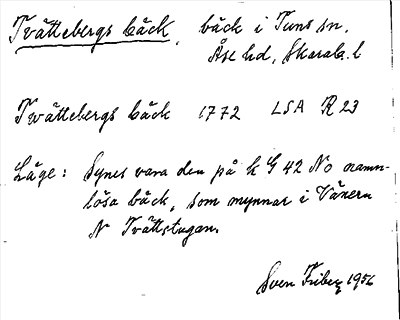 Tvättebergs bäck, bäck i Tuns sn,
Åse hd, Skarab. l
Tvättebergs bäck 1772 LSA R 23
Läge: Synes vara den på k G 42 No namn-
lösa bäck, som mynnar i Vänern
N Tvättstugan.
Sven Friberg 1956